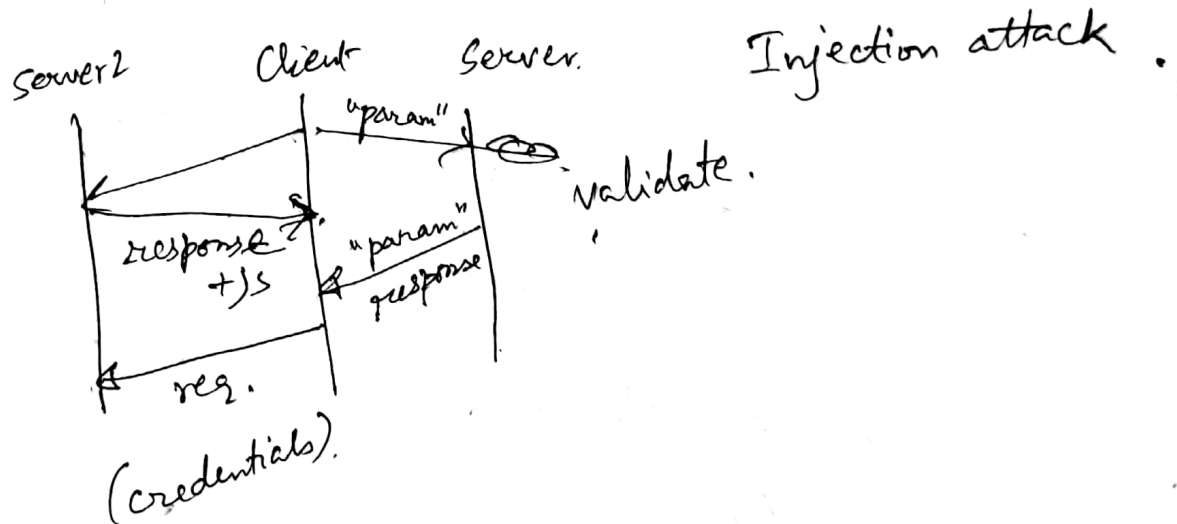 Server2 Client Server. Injection attack.
"param"
validate.
response
+js
"param"
response
req.
(credentials).